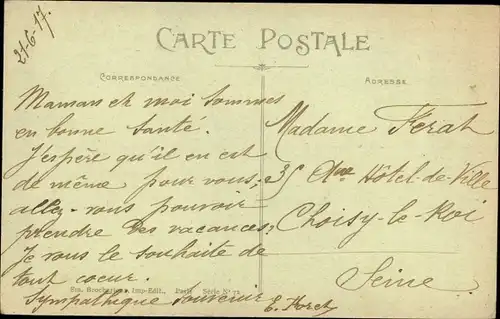 21-6-17.
CARTE POSTALE
CORRESPONDANCE
ADRESSE
Maman et moi sommes
en bonne santé.
J'espère qu'il en est
de même pour vous;
allez-vous pouvoir
prendre des vacances,
Je vous le souhaite de
tout coeur.
Sympathique souvenir
E. Floret
Madame Ferat
35 Que Hôtel-de-Ville
Choisy-le-Roi
Seine
Imp-Édit., Paris Série N° 72